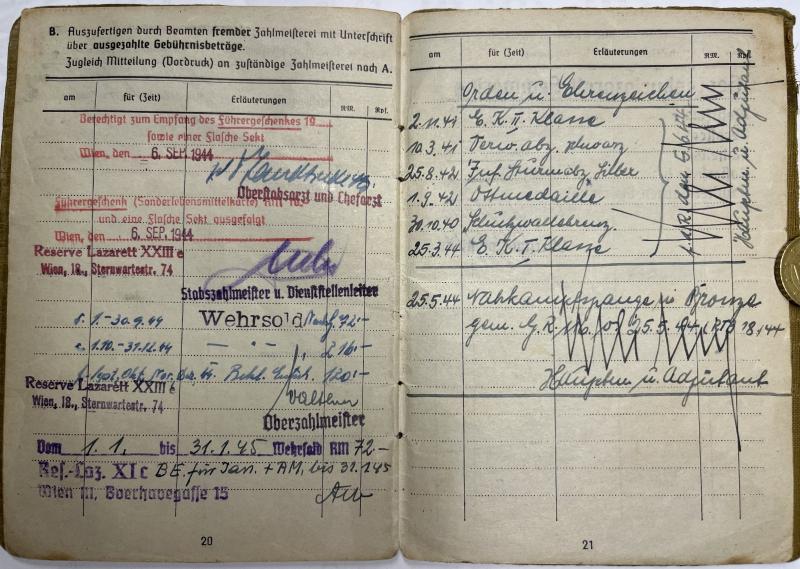 B. Auszufertigen durch Beamten fremder Zahlmeisterei mit Unterschrift
über ausgezahlte Gebührnisbeträge.
Zugleich Mitteilung (Vordruck) an zuständige Zahlmeisterei nach A.
am für (Zeit) Erläuterungen RM. Rpf.
Berechtigt zum Empfang des Führergeschenkes 19
sowie einer Flasche Sekt
Wien, den 6. SEP. 1944
Oberstabsarzt und Chefarzt
Führergeschenk (Sonderlebensmittelkarte)
und eine Flasche Sekt ausgefolgt
Wien, den 6. SEP. 1944
Reserve Lazarett XXIII c
Wien, 18., Sternwartestr. 74
Stabszahlmeister u. Dienststellenleiter
1.-30.9.44 Wehrsold 72.-
1.10.-31.12.44 - " - 216.-
120.-
Reserve Lazarett XXIII c
Wien, 18., Sternwartestr. 74
Oberzahlmeister
Vom 1.1. bis 31.1.45 Wehrsold RM 72-
Res.-Laz. XI c BE. für Jan. + AM. bis 31.1.45
Wien III, Boerhavegasse 15
20
am für (Zeit) Erläuterungen RM. Rpf.
Orden u. Ehrenzeichen
2.11.41 E. K. II. Klasse
10.3.41 Verw. abz. schwarz
25.8.42 Inf. Sturmabz. Silber
1.9.42 Ostmedaille
30.10.40 Schutzwallehrenz.
25.3.44 E. K. I. Klasse
f. d. R. den
Hauptm. u. Adjutant
25.5.44 Nahkampfspange in Bronze
gem. G. R. No. 25.5.44 18/44
Hauptm. u. Adjutant
21